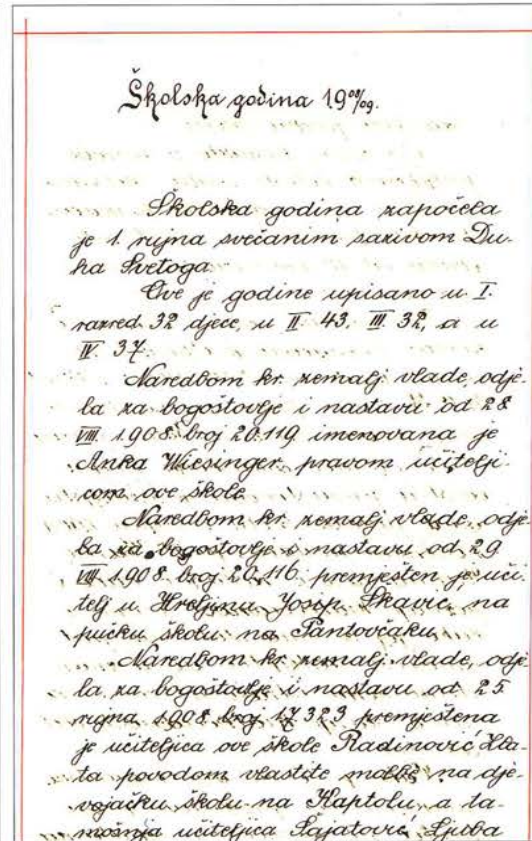 Školska godina 1908/09.
Školska godina započela
je 1. rujna svečanim sazivom Du-
ha Svetoga.
Ove je godine upisano u I.
razred 32 djece, u II. 43. III. 32, a u
IV. 37.
Naredbom kr. zemalj. vlade, odje-
la za bogoštovlje i nastavu od 28.
VIII. 1908. broj 20.119 imenovana je
Anka Wiesinger pravom učitelji-
com ove škole.
Naredbom kr. zemalj. vlade, odje-
la za bogoštovlje i nastavu od 29.
VIII. 1908. broj 20.116 premješten je uči-
telj u Hreljinu Josip Škavić, na
pučku školu na Pantovčaku.
Naredbom kr. zemalj. vlade, odje-
la za bogoštovlje i nastavu od 25.
rujna 1908. broj 17323 premještena
je učiteljica ove škole Radinović Zla-
ta povodom vlastite molbe na dje-
vojačku školu na Kaptolu, a ta-
mošnja učiteljica Šajatović Ljuba